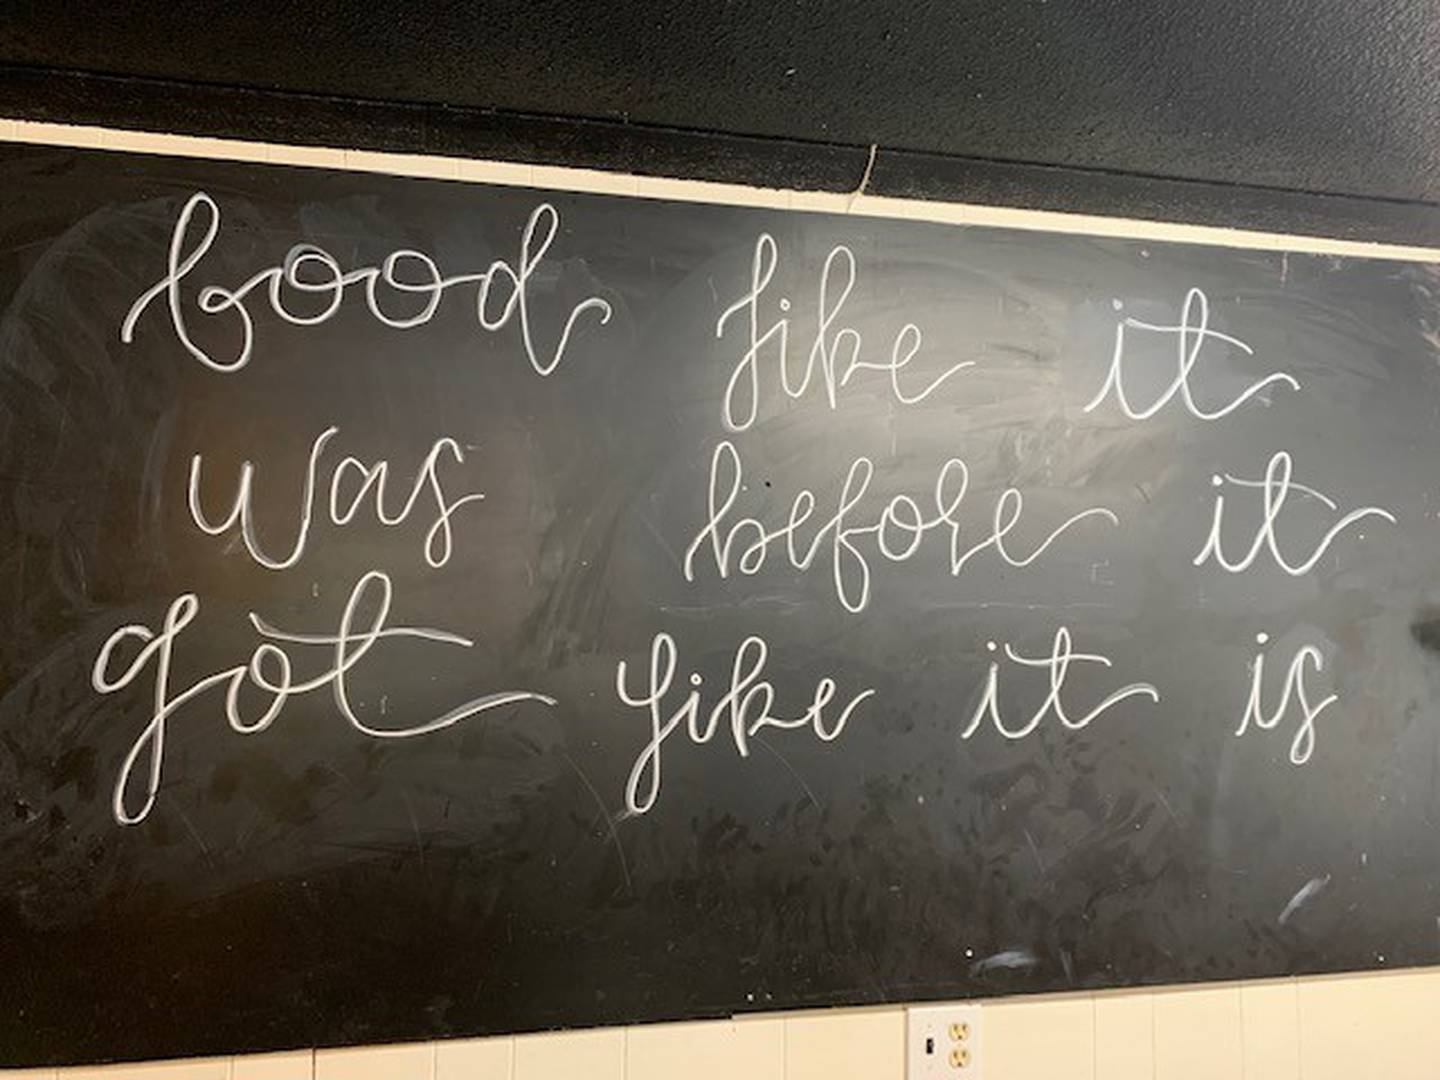 food like it
was before it
got like it is